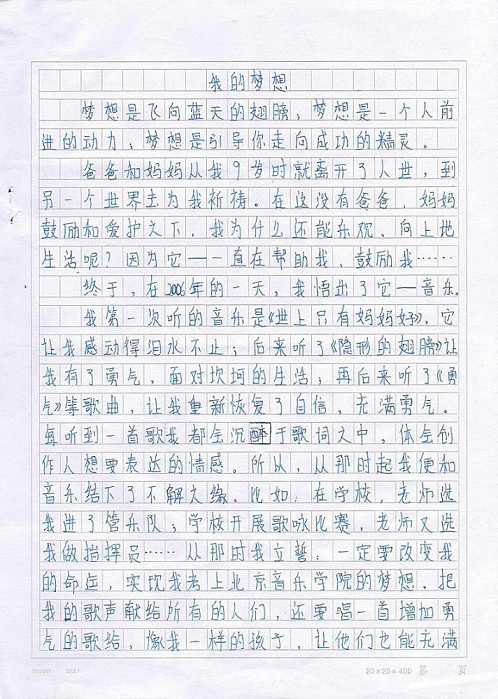 我的梦想
梦想是飞向蓝天的翅膀，梦想是一个人前
进的动力，梦想是引导你走向成功的精灵。
爸爸和妈妈从我9岁时就离开了人世，到
另一个世界去为我祈祷。在这没有爸爸、妈妈
鼓励和爱护之下，我为什么还能乐欢、向上地
生活呢？因为它一一直在帮助我、鼓励我……
终于，在2006年的一天，我悟出了它—音乐。
我第一次听的音乐是《世上只有妈妈好》，它
让我感动得泪水不止；后来听了《隐形的翅膀》让
我有了勇气，面对坎坷的生活；再后来听了《勇
气》等歌曲，让我重新恢复了自信，充满勇气。
每听到一首歌我都会沉醉于歌词之中，体会创
作人想要表达的情感。所以，从那时起我便和
音乐结下了不解之缘。比如：在学校，老师选
我进了管乐队；学校开展歌咏比赛，老师又选
我做指挥员……从那时我立誓：一定要改变我
的命运，实现我考上北京音乐学院的梦想。把
我的歌声献给所有的人们，还要唱一首增加勇
气的歌给，像我一样的孩子，让他们也能充满
20×20=400 第 页